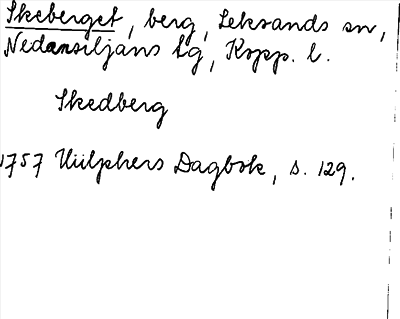 Skeberget, berg, Leksands sn,
Nedansiljans tg, Kopp. l.
Skedberg
1757 Hülphers Dagbok, s. 129.